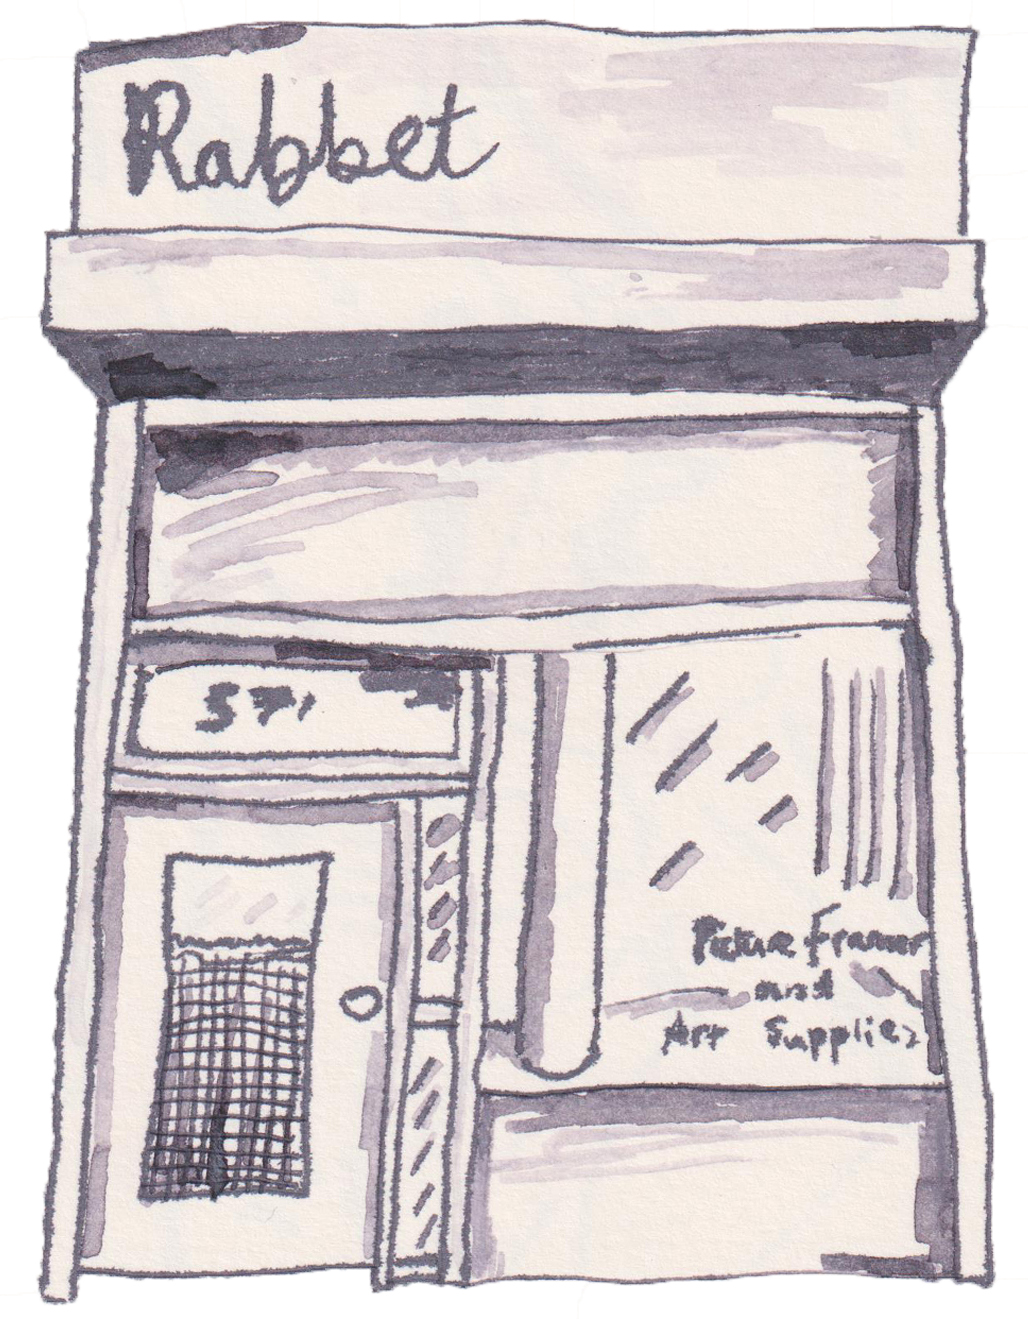 Rabbet
571
Picture Framer
and
Art Supplies